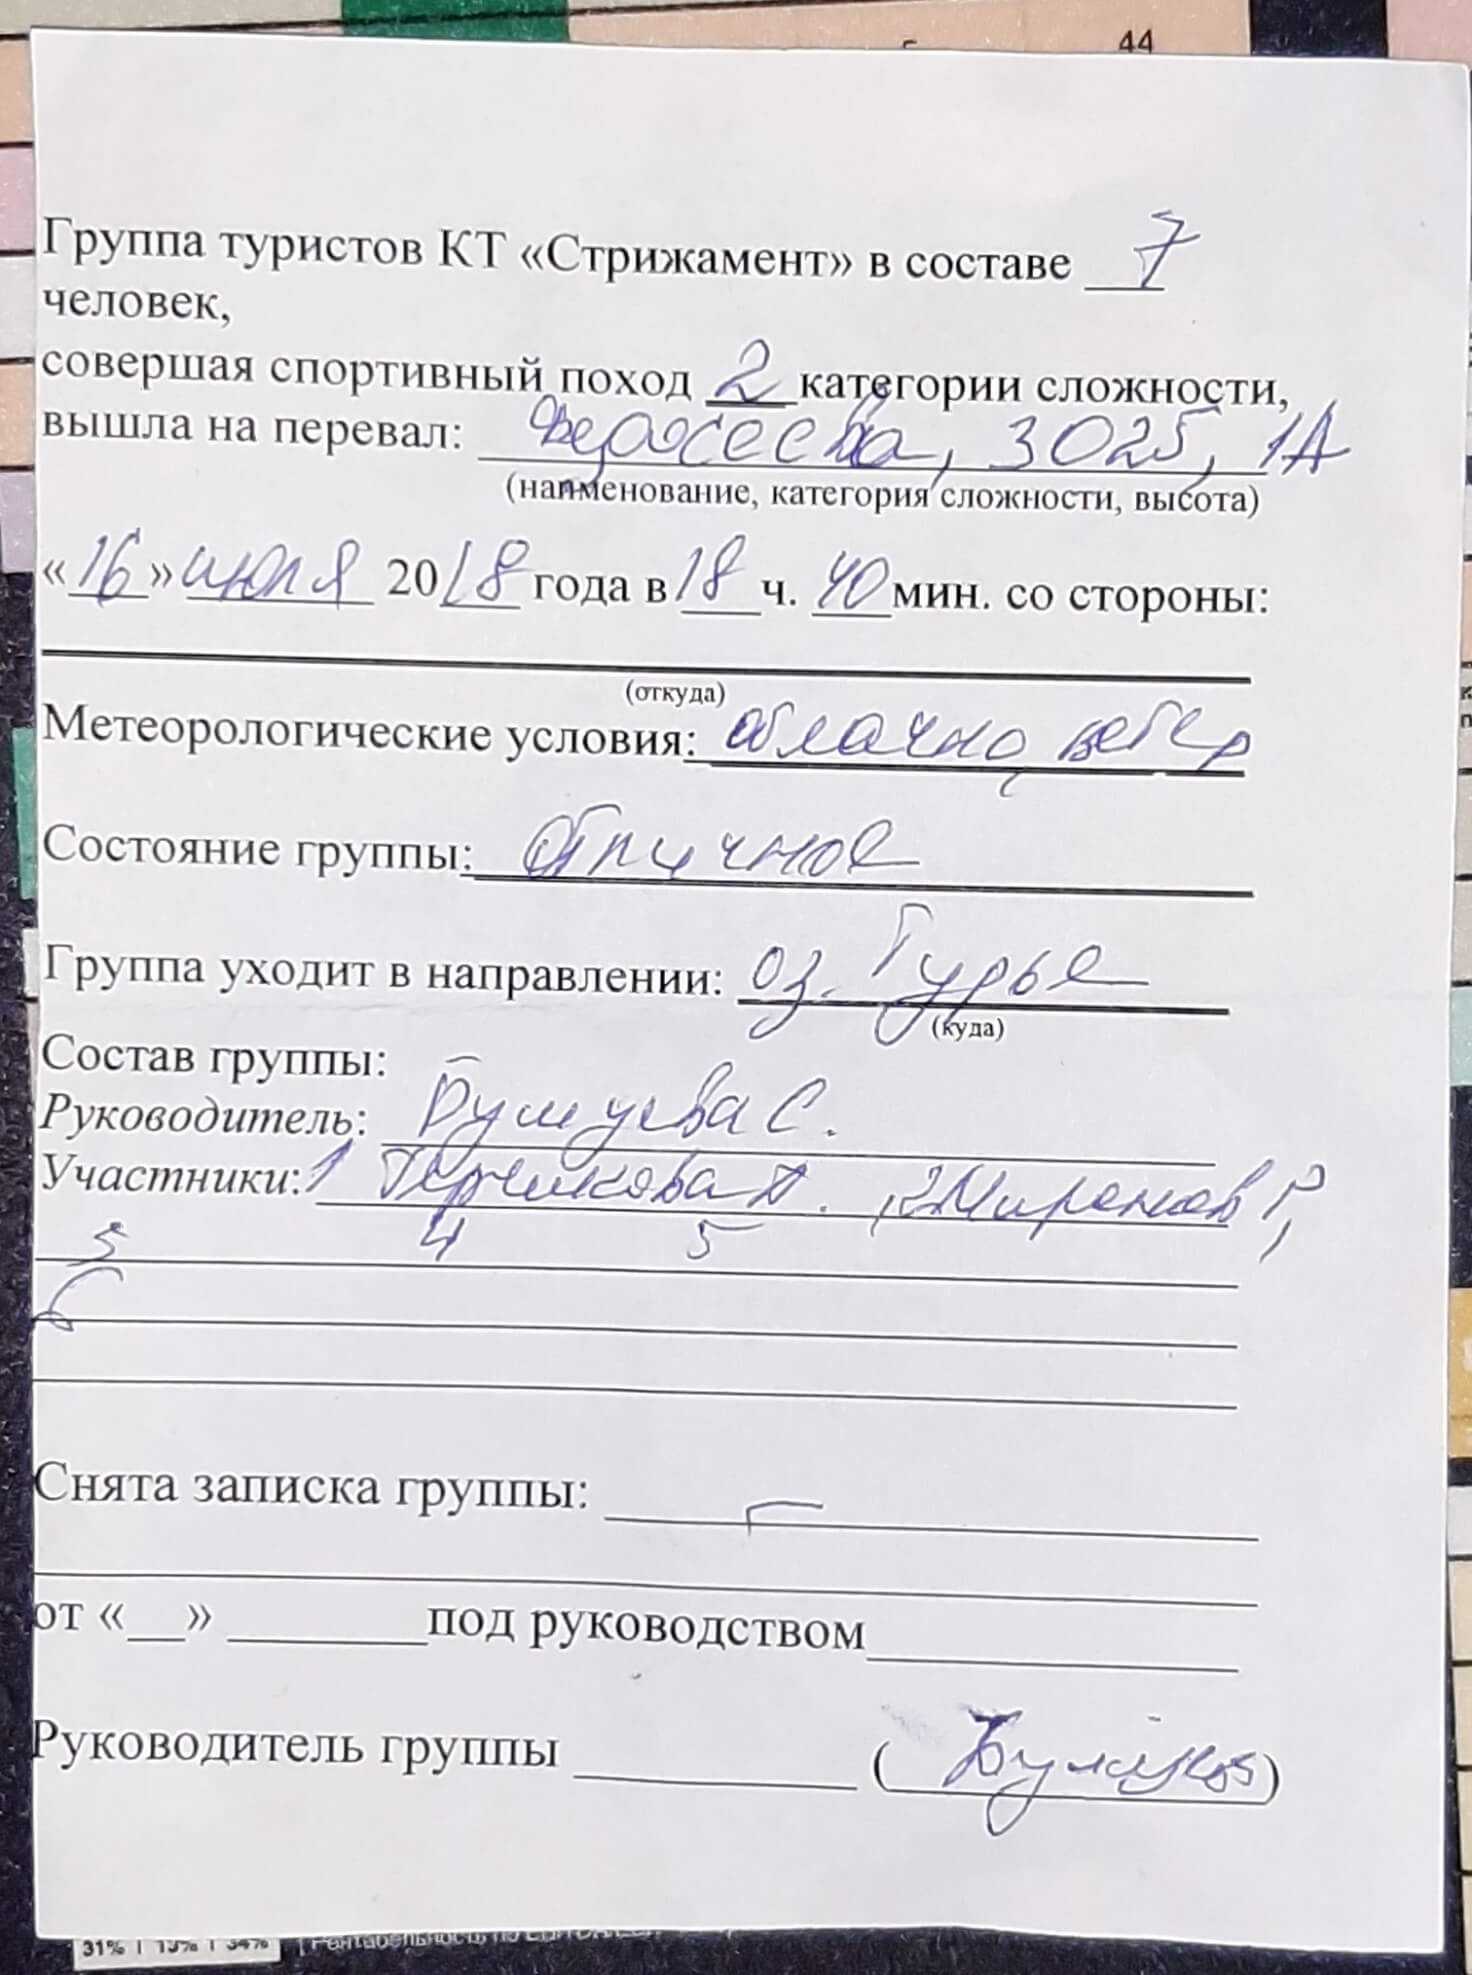 44
Группа туристов КТ «Стрижамент» в составе 7
человек,
совершая спортивный поход 2 категории сложности,
вышла на перевал: Федосеева, 3025, 1А
(наименование, категория сложности, высота)
«16» июля 2018 года в 18 ч. 40 мин. со стороны:
(откуда)
Метеорологические условия: облачно, ветер
Состояние группы: отличное
Группа уходит в направлении: оз. Гурье
(куда)
Состав группы:
Руководитель: С.
Участники: 1 2 Миронов Г,
3 4 5
6
Снята записка группы:
от «__» под руководством
Руководитель группы ( )
31% 13% 34%